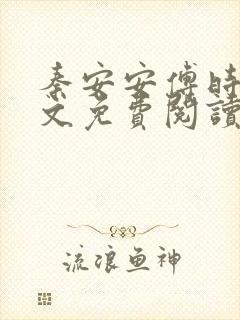 秦安安傅時
文免費閱讀
流浪鱼神